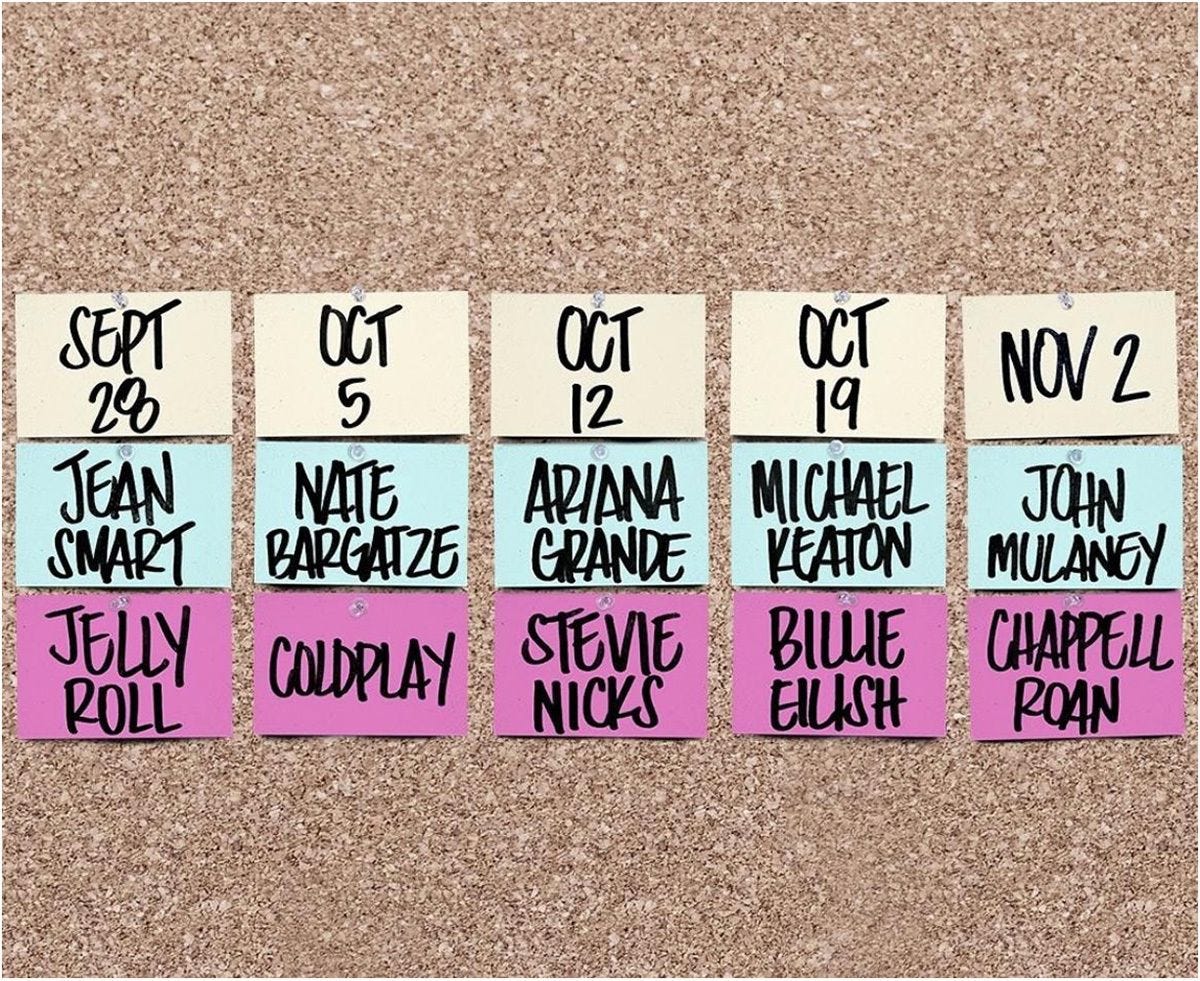 SEPT
28
OCT
5
OCT
12
OCT
19
NOV 2
JEAN
SMART
NATE
BARGATZE
ARIANA
GRANDE
MICHAEL
KEATON
JOHN
MULANEY
JELLY
ROLL
COLDPLAY
STEVIE
NICKS
BILLIE
EILISH
CHAPPELL
ROAN